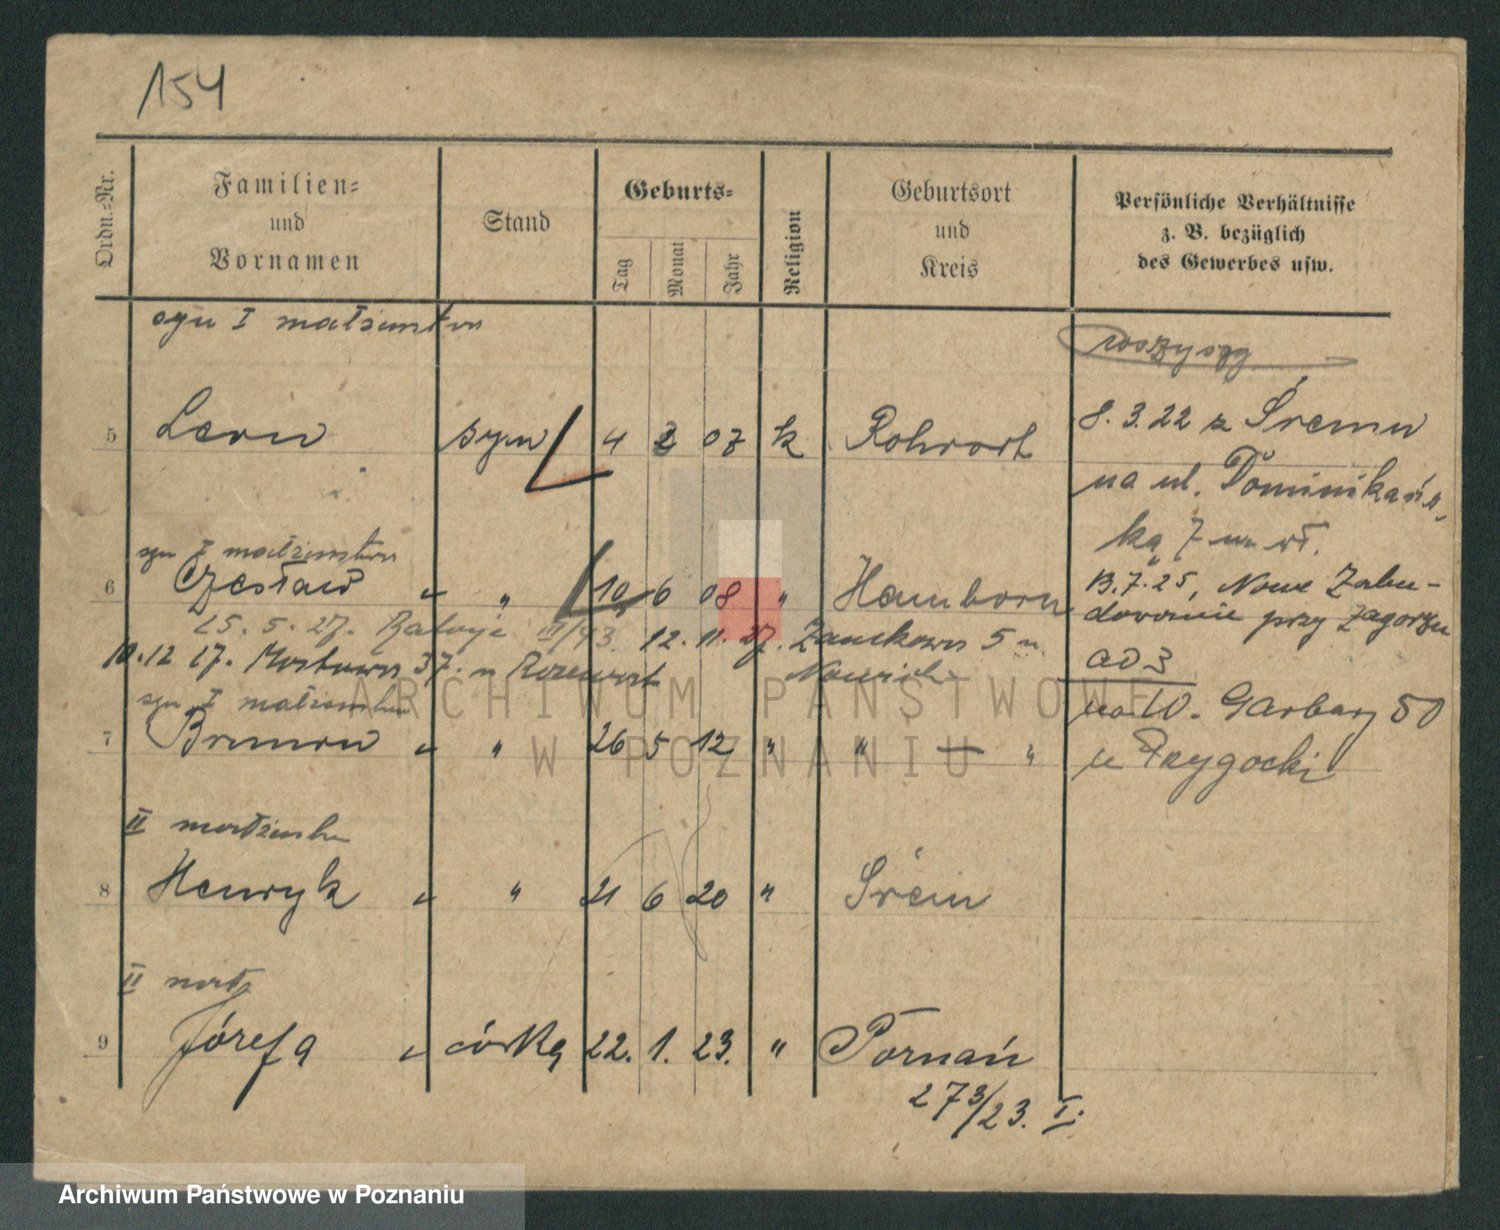 154
Ordn.-Nr.
Familien-
und
Vornamen
Stand
Geburts-
Tag
Monat
Jahr
Religion
Geburtsort
und
Kreis
Persönliche Verhältnisse
z. B. bezüglich
des Gewerbes usw.
syn I małżeństwa
wszyscy
5 Leon syn 4 2 07 k Rohrort
8.3.22 z Śremu
na ul. Dominikańs-
ką 7 m. wł.
syn I małżeństwa
6 Czesław " " 10 6 08 " Hamborn
13.7.25, Nowe Zabu-
dowanie przy Zagórzu
ad 3
15. 5. 27. III/43. 12. 11. 27. Zamkowa 5 u.
10.12 27. Mostowa 37. u
na 10. Garbary 50
u Przygocki
syn I małżeństwa
7 Brunon " " 26 5 12 " " — "
II małżeństw
8 Henryk " " 21 6 20 " Śrem
II małż
9 Józefa " córka 22. 1. 23. " Poznań
273/23. I.
ARCHIWUM PAŃSTWOWE
W POZNANIU
Archiwum Państwowe w Poznaniu